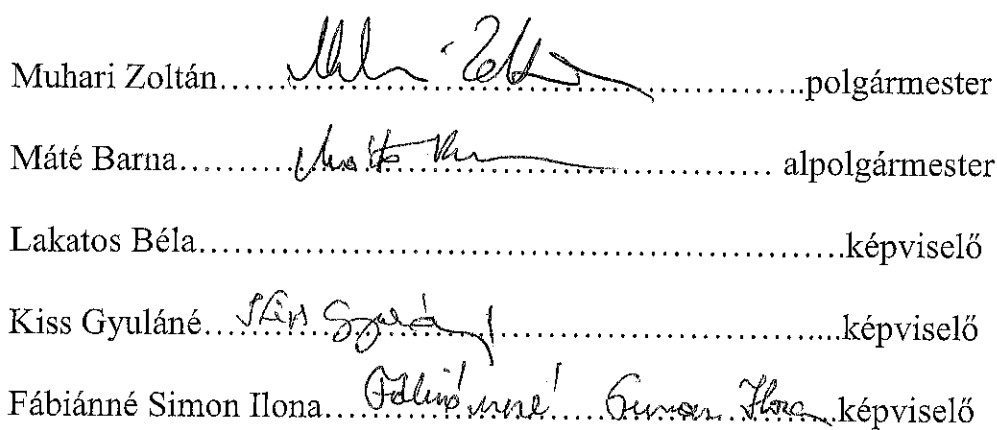 Muhari Zoltán……………………………………………………polgármester
Máté Barna…………………………………………………… alpolgármester
Lakatos Béla……………………………………………………képviselő
Kiss Gyuláné… Kiss Gyuláné ……………………………....képviselő
Fábiánné Simon Ilona… Fábiánné …. Simon Ilona .képviselő